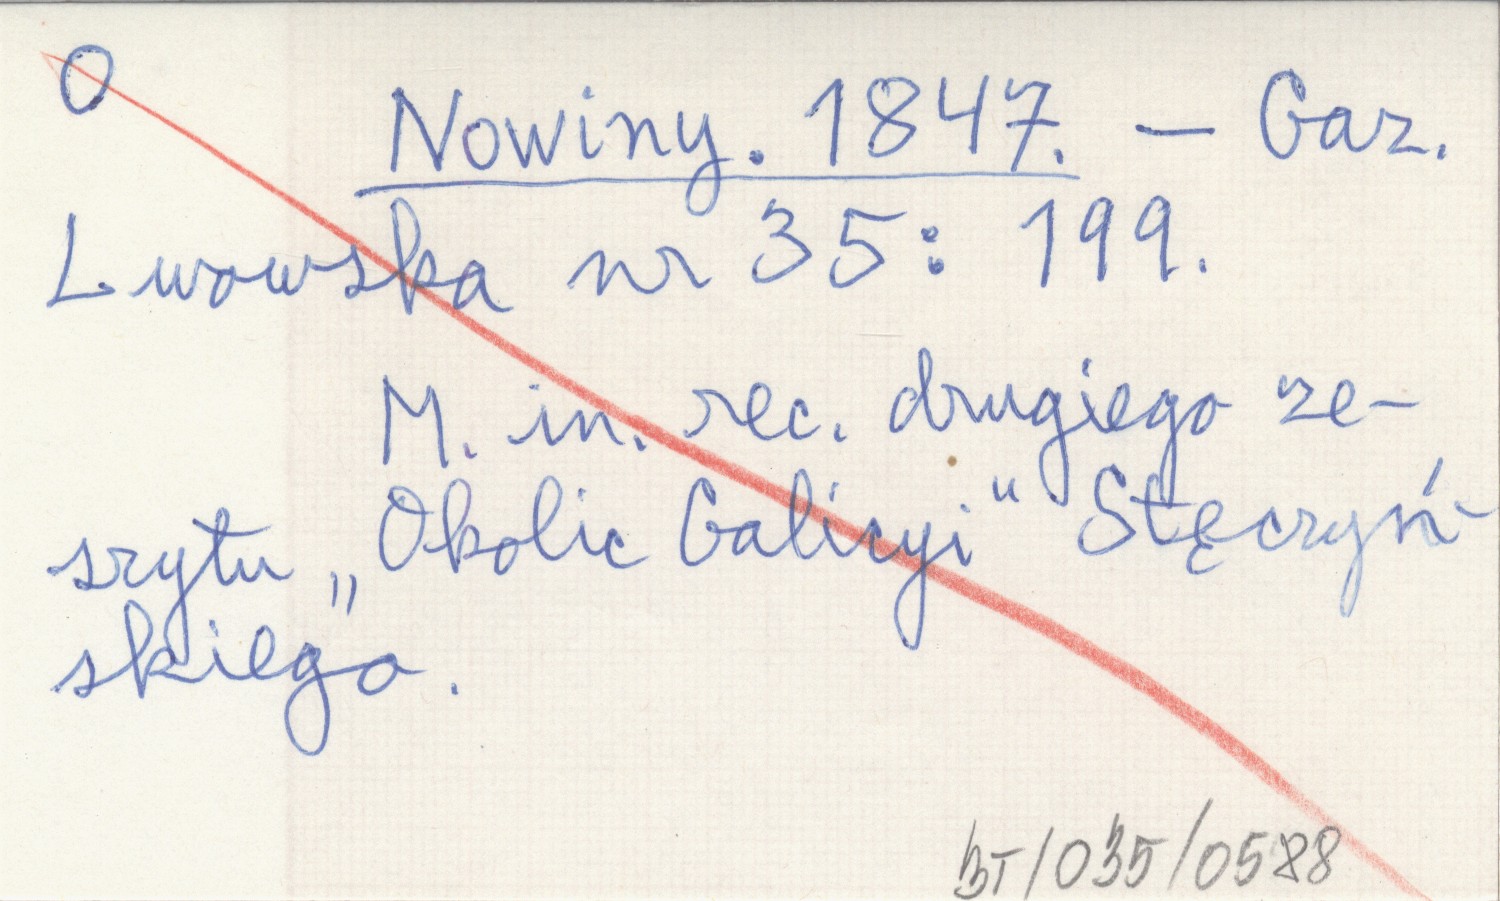 O
Nowiny. 1847. – Gaz.
Lwowska nr 35: 199.
M. in. rec. drugiego ze-
szytu „Okolic Galicyi" Stęczyń-
skiego.
BT/035/0588